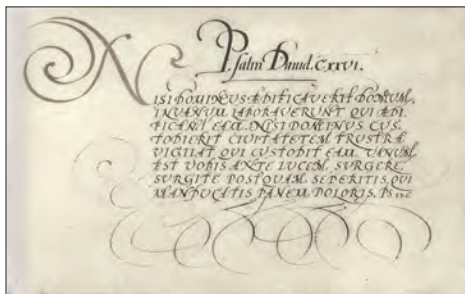 Psalm Dauid. CXXVI.
NISI DOMINUS ÆDIFICAVERIT DOMUM,
IN VANUM LABORAVERUNT QUI ÆDI
FICANT EAM. NISI DOMINUS CUS
TODIERIT CIVITATETEM, FRUSTRA
VIGILAT QUI CUSTODIT EAM. VANUM
EST VOBIS ANTE LUCEM SURGERE
SURGITE POSTQUAM SEDERITIS, QUI
MANDUCATIS PANEM DOLORIS. PS